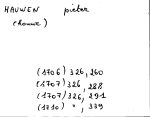 HAUWEN pieter
(houwe)
(1706) 326, 260
(1707) 326, 288
(1707) 326, 291
(1710) ", 339